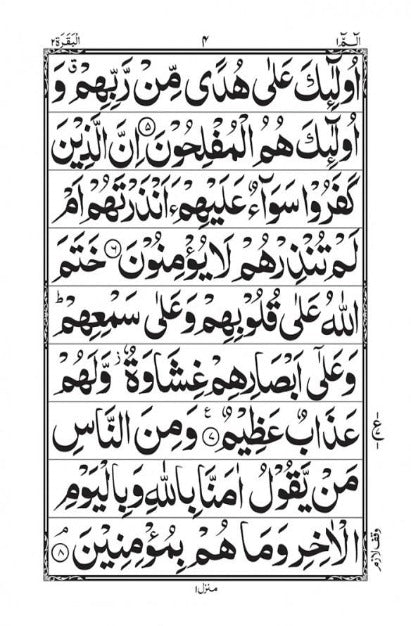 الٓمّٓ ١ ٤ البقرة ٢
اُولٰٓئِكَ عَلٰى هُدًى مِّنْ رَّبِّهِمْ ۗ وَ
اُولٰٓئِكَ هُمُ الْمُفْلِحُوْنَ ۝۵ اِنَّ الَّذِيْنَ
كَفَرُوْا سَوَآءٌ عَلَيْهِمْ ءَاَنْذَرْتَهُمْ اَمْ
لَمْ تُنْذِرْهُمْ لَا يُؤْمِنُوْنَ ۝۶ خَتَمَ
اللّٰهُ عَلٰى قُلُوْبِهِمْ وَعَلٰى سَمْعِهِمْ ؕ
وَعَلٰٓى اَبْصَارِهِمْ غِشَاوَةٌ ز وَّلَهُمْ
عَذَابٌ عَظِيْمٌ ۝۷ ع وَمِنَ النَّاسِ
مَنْ يَّقُوْلُ اٰمَنَّا بِاللّٰهِ وَبِالْيَوْمِ
الْاٰخِرِ وَمَا هُمْ بِمُؤْمِنِيْنَ ۝۸ ۘ
وقف لازم
منزل ١